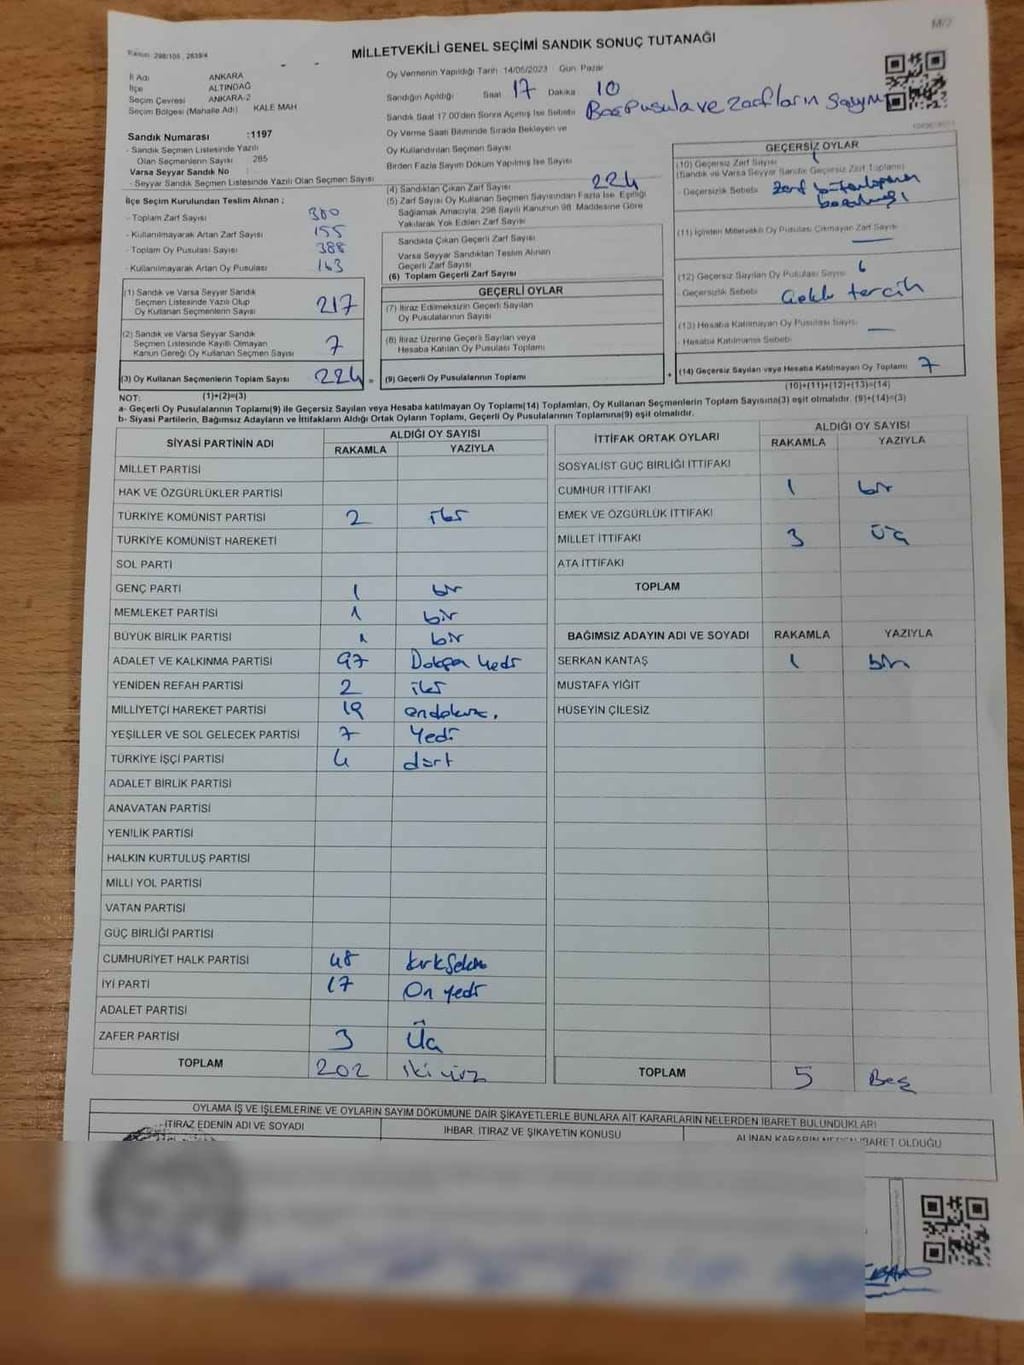 M/2
MİLLETVEKİLİ GENEL SEÇİMİ SANDIK SONUÇ TUTANAĞI
İl Adı ANKARA
İlçe ALTINDAĞ
Seçim Çevresi ANKARA-2
Seçim Bölgesi (Mahalle Adı) KALE MAH
Oy Vermenin Yapıldığı Tarih :14/05/2023 Gün: Pazar
Sandığın Açıldığı Saat 17 Dakika 10
Sandık Saat 17.00'den Sonra Açılmış İse Sebebi Boş Pusula ve Zarfların Sayımı
Oy Verme Saati Bitiminde Sırada Bekleyen ve
Oy Kullandırılan Seçmen Sayısı
Birden Fazla Sayım Döküm Yapılmış İse Sayısı
Sandık Numarası :1197
- Sandık Seçmen Listesinde Yazılı
Olan Seçmenlerin Sayısı 265
Varsa Seyyar Sandık No
- Seyyar Sandık Seçmen Listesinde Yazılı Olan Seçmen Sayısı
İlçe Seçim Kurulundan Teslim Alınan ;
- Toplam Zarf Sayısı 380
- Kullanılmayarak Artan Zarf Sayısı 155
- Toplam Oy Pusulası Sayısı 388
- Kullanılmayarak Artan Oy Pusulası 163
(1) Sandık ve Varsa Seyyar Sandık
Seçmen Listesinde Yazılı Olup
Oy Kullanan Seçmenlerin Sayısı 217
(2) Sandık ve Varsa Seyyar Sandık
Seçmen Listesinde Kayıtlı Olmayan
Kanun Gereği Oy Kullanan Seçmen Sayısı 7
(3) Oy Kullanan Seçmenlerin Toplam Sayısı 224 =
(4) Sandıktan Çıkan Zarf Sayısı 224
(5) Zarf Sayısı Oy Kullanan Seçmen Sayısından Fazla İse, Eşitliği
Sağlamak Amacıyla, 298 Sayılı Kanunun 98. Maddesine Göre
Yakılarak Yok Edilen Zarf Sayısı
Sandıkta Çıkan Geçerli Zarf Sayısı
Varsa Seyyar Sandıktan Teslim Alınan
Geçerli Zarf Sayısı
(6) Toplam Geçerli Zarf Sayısı
GEÇERLİ OYLAR
(7) İtiraz Edilmeksizin Geçerli Sayılan
Oy Pusulalarının Sayısı
(8) İtiraz Üzerine Geçerli Sayılan veya
Hesaba Katılan Oy Pusulası Toplamı
(9) Geçerli Oy Pusulalarının Toplamı +
GEÇERSİZ OYLAR
(10) Geçersiz Zarf Sayısı 1
(Sandık ve Varsa Seyyar Sandık Geçersiz Zarf Toplamı)
- Geçersizlik Sebebi
(11) İçinden Milletvekili Oy Pusulası Çıkmayan Zarf Sayısı
(12) Geçersiz Sayılan Oy Pusulası Sayısı 6
- Geçersizlik Sebebi Çoklu tercih
(13) Hesaba Katılmayan Oy Pusulası Sayısı
- Hesaba Katılmama Sebebi
(14) Geçersiz Sayılan veya Hesaba Katılmayan Oy Toplamı 7
NOT: (1)+(2)=(3) (10)+(11)+(12)+(13)=(14)
a- Geçerli Oy Pusulalarının Toplamı(9) ile Geçersiz Sayılan veya Hesaba katılmayan Oy Toplamı(14) Toplamları, Oy Kullanan Seçmenlerin Toplam Sayısına(3) eşit olmalıdır. (9)+(14)=(3)
b- Siyasi Partilerin, Bağımsız Adayların ve İttifakların Aldığı Ortak Oyların Toplamı, Geçerli Oy Pusulalarının Toplamına(9) eşit olmalıdır.
SİYASİ PARTİNİN ADI ALDIĞI OY SAYISI
RAKAMLA YAZIYLA
MİLLET PARTİSİ
HAK VE ÖZGÜRLÜKLER PARTİSİ
TÜRKİYE KOMÜNİST PARTİSİ 2 iki
TÜRKİYE KOMÜNİST HAREKETİ
SOL PARTİ
GENÇ PARTİ 1 bir
MEMLEKET PARTİSİ 1 bir
BÜYÜK BİRLİK PARTİSİ 1 bir
ADALET VE KALKINMA PARTİSİ 97 Doksan Yedi
YENİDEN REFAH PARTİSİ 2 iki
MİLLİYETÇİ HAREKET PARTİSİ 19 ondokuz.
YEŞİLLER VE SOL GELECEK PARTİSİ 7 Yedi
TÜRKİYE İŞÇİ PARTİSİ 4 dört
ADALET BİRLİK PARTİSİ
ANAVATAN PARTİSİ
YENİLİK PARTİSİ
HALKIN KURTULUŞ PARTİSİ
MİLLİ YOL PARTİSİ
VATAN PARTİSİ
GÜÇ BİRLİĞİ PARTİSİ
CUMHURİYET HALK PARTİSİ 48 kırksekiz
İYİ PARTİ 17 On yedi
ADALET PARTİSİ
ZAFER PARTİSİ 3 Üç
TOPLAM 202 iki yüz
İTTİFAK ORTAK OYLARI ALDIĞI OY SAYISI
RAKAMLA YAZIYLA
SOSYALİST GÜÇ BİRLİĞİ İTTİFAKI
CUMHUR İTTİFAKI 1 bir
EMEK VE ÖZGÜRLÜK İTTİFAKI
MİLLET İTTİFAKI 3 üç
ATA İTTİFAKI
TOPLAM
BAĞIMSIZ ADAYIN ADI VE SOYADI RAKAMLA YAZIYLA
SERKAN KANTAŞ 1 bir
MUSTAFA YİĞİT
HÜSEYİN ÇİLESİZ
TOPLAM 5 Beş
OYLAMA İŞ VE İŞLEMLERİNE VE OYLARIN SAYIM DÖKÜMÜNE DAİR ŞİKAYETLERLE BUNLARA AİT KARARLARIN NELERDEN İBARET BULUNDUKLARI
İTİRAZ EDENİN ADI VE SOYADI İHBAR, İTİRAZ VE ŞİKAYETİN KONUSU ALINAN KARARIN NEDEN İBARET OLDUĞU